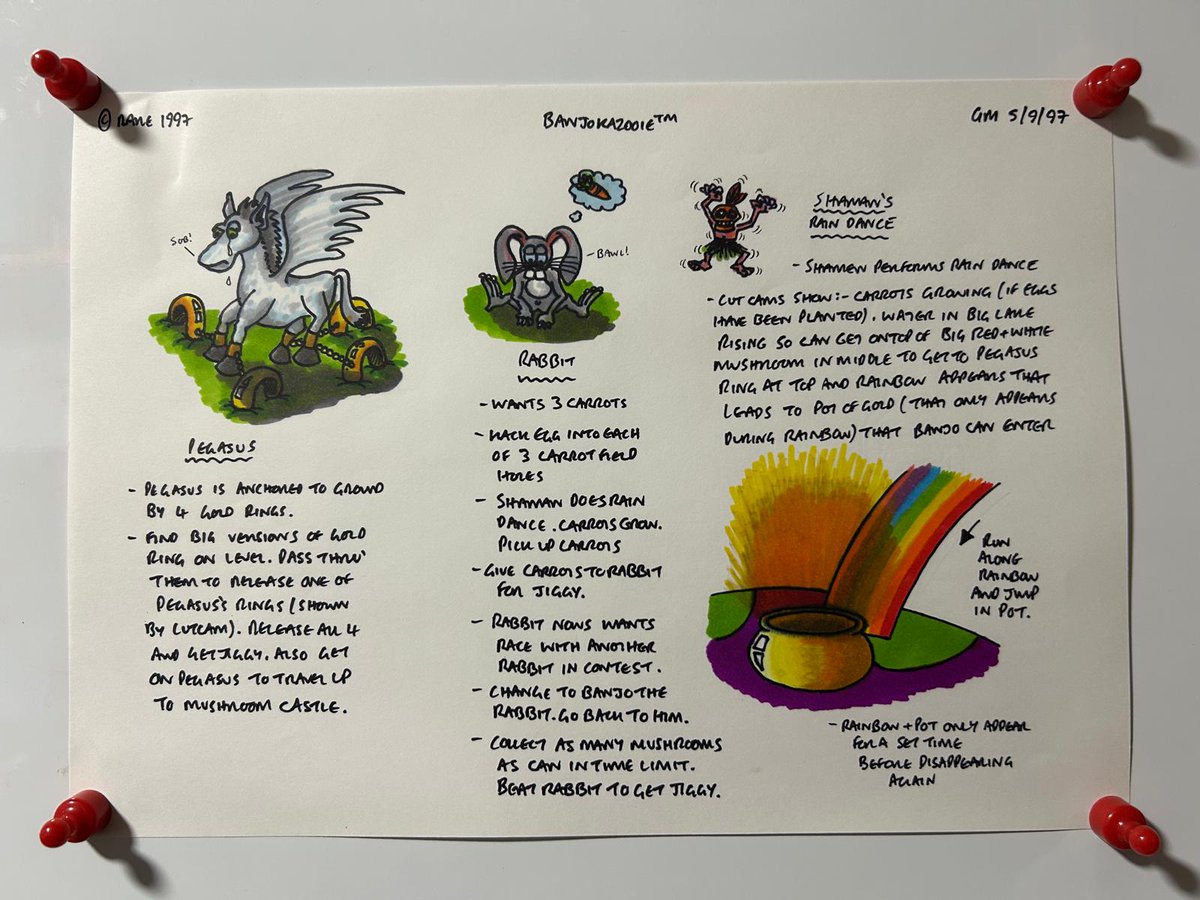 © RARE 1997
BANJOKAZOOIE™
GM 5/9/97
SOB!
PEGASUS
- PEGASUS IS ANCHORED TO GROUND
BY 4 GOLD RINGS.
- FIND BIG VERSIONS OF GOLD
RING ON LEVEL. PASS THRU'
THEM TO RELEASE ONE OF
PEGASUS'S RINGS (SHOWN
BY CUTCAM). RELEASE ALL 4
AND GET JIGGY. ALSO GET
ON PEGASUS TO TRAVEL UP
TO MUSHROOM CASTLE.
- BAWL!
RABBIT
- WANTS 3 CARROTS
- WACK EGG INTO EACH
OF 3 CARROT FIELD
HOLES
- SHAMAN DOES RAIN
DANCE. CARROTS GROW.
PICK UP CARROTS
- GIVE CARROTS TO RABBIT
FOR JIGGY.
- RABBIT NOWS WANTS
RACE WITH ANOTHER
RABBIT IN CONTEST.
- CHANGE TO BANJO THE
RABBIT. GO BACK TO HIM.
- COLLECT AS MANY MUSHROOMS
AS CAN IN TIME LIMIT.
BEAT RABBIT TO GET JIGGY.
SHAMAN'S
RAIN DANCE
- SHAMEN PERFORMS RAIN DANCE
- CUT CAMS SHOW:- CARROTS GROWING (IF EGGS
HAVE BEEN PLANTED). WATER IN BIG LAKE
RISING SO CAN GET ONTOP OF BIG RED+WHITE
MUSHROOM IN MIDDLE TO GET TO PEGASUS
RING AT TOP AND RAINBOW APPEARS THAT
LEADS TO POT OF GOLD (THAT ONLY APPEARS
DURING RAINBOW) THAT BANJO CAN ENTER
RUN
ALONG
RAINBOW
AND JUMP
IN POT.
- RAINBOW + POT ONLY APPEAR
FOR A SET TIME
BEFORE DISAPPEARING
AGAIN